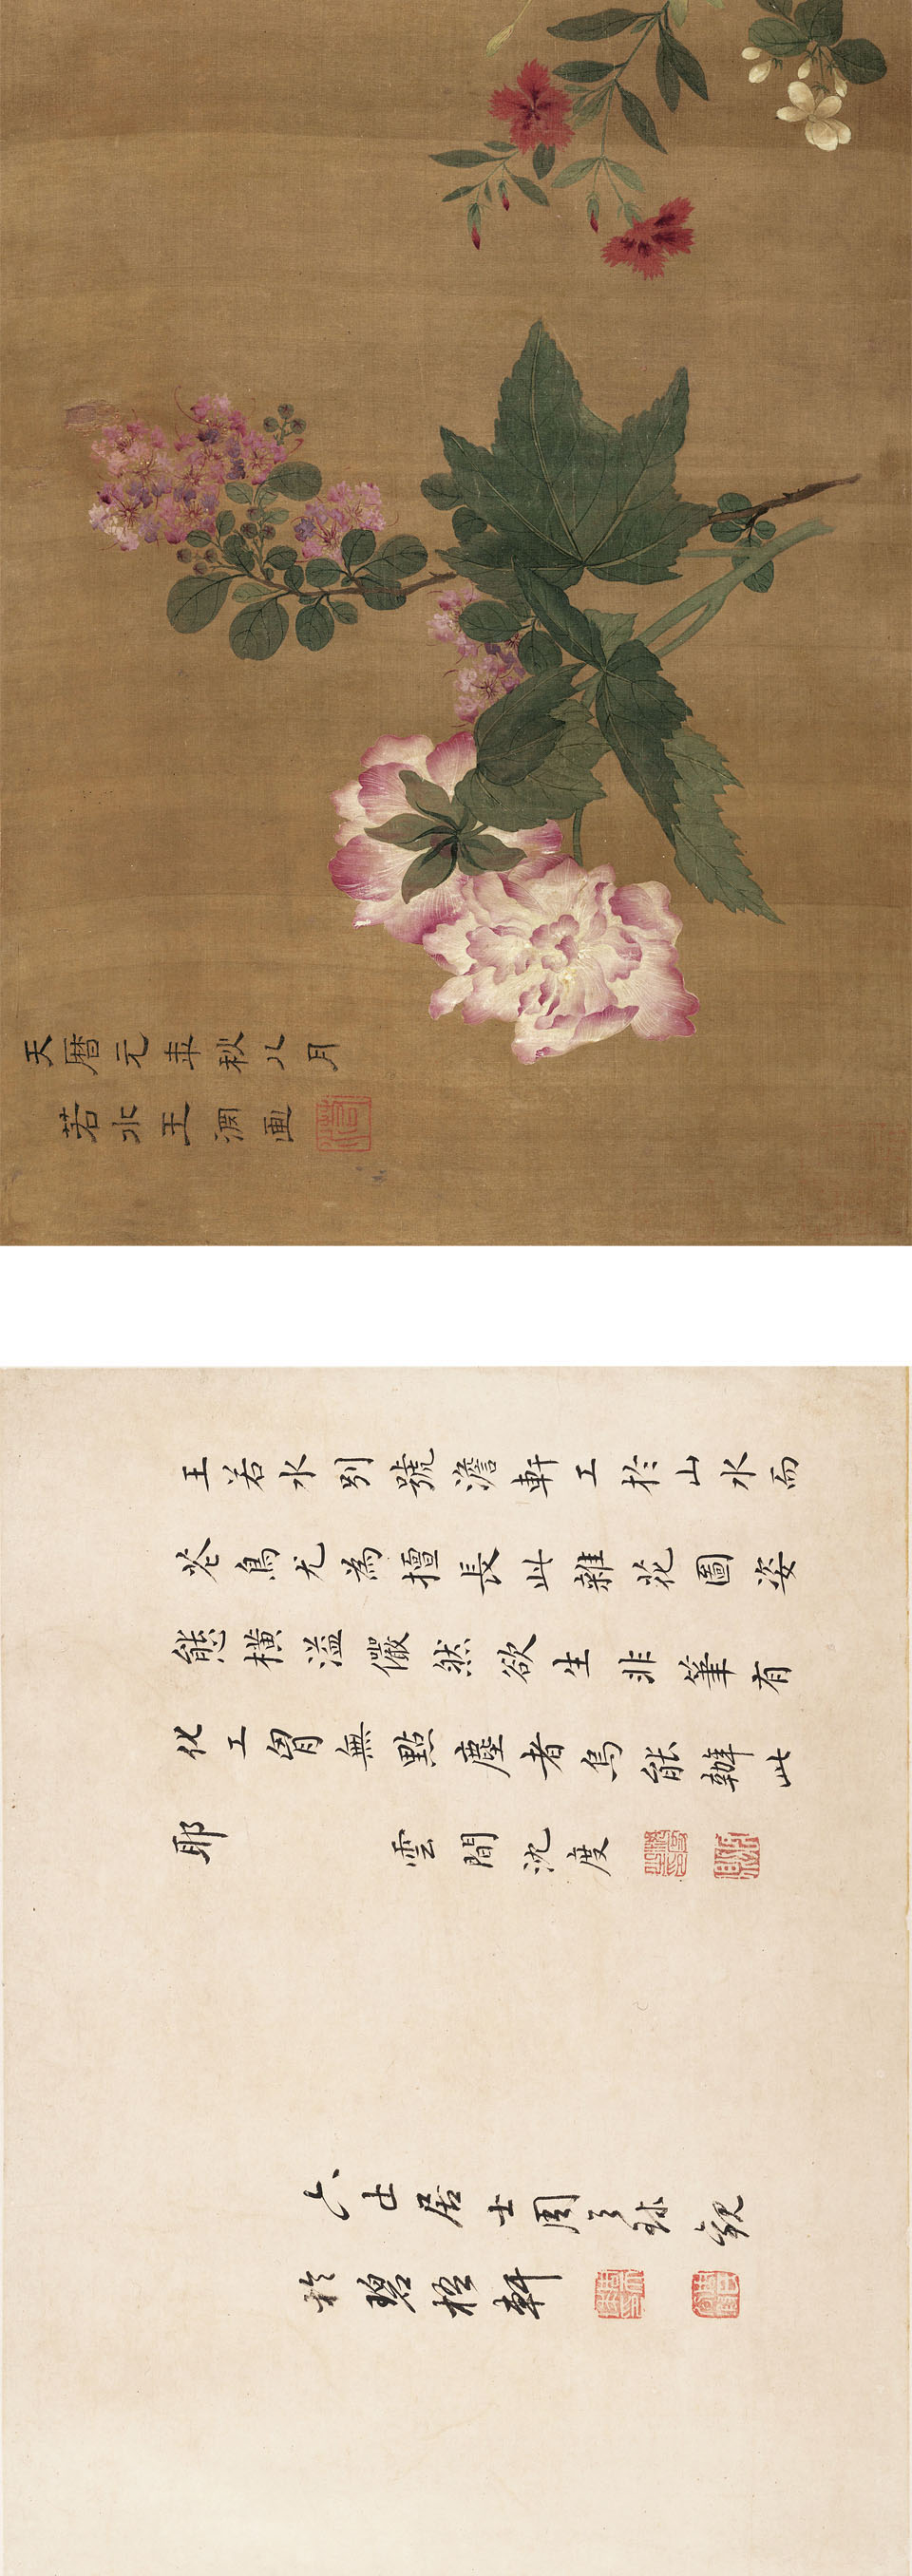 天暦元年秋八月
若水王淵画
王若水別號澹軒工於山水而
花鳥尤為擅長此雜花圖姿
態橫溢儼然欲生非筆有
化工胷無點塵者烏能辦此
耶 雲間沈度
六止居士周 觀
於碧梧軒